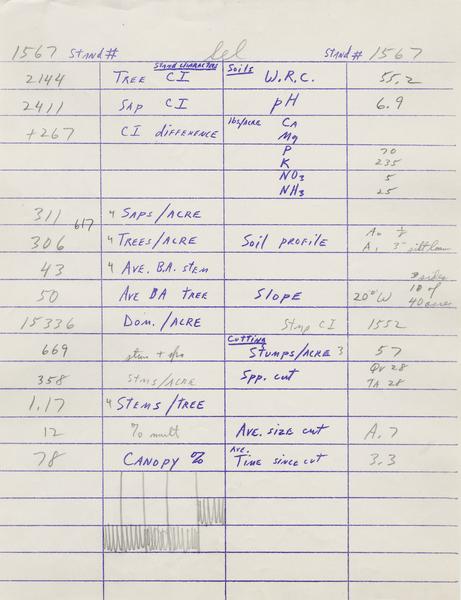 1567 Stand# Stand# 1567
Stand Characters Soils
2144 Tree CI W.R.C. 55.2
2411 Sap CI pH 6.9
+267 CI difference lbs/acre Ca
Mg
P 70
K 235
NO3 5
NH3 25
311 4 Saps/Acre
617
306 4 Trees/Acre Soil profile A0 ½
A1 3" silt loam
43 4 Ave. B.A. stem
50 Ave BA tree Slope 20° W 3 sides
10 of
40 acres
15336 Dom./acre Stmp CI 1552
Cutting
669 stem + spo Stumps/acre 3 57
358 Stms/acre Spp. cut Qv 28
Ta 28
1.17 4 Stems/tree
12 % mult Ave. size cut A.7
78 Canopy % Ave. Time since cut 3.3